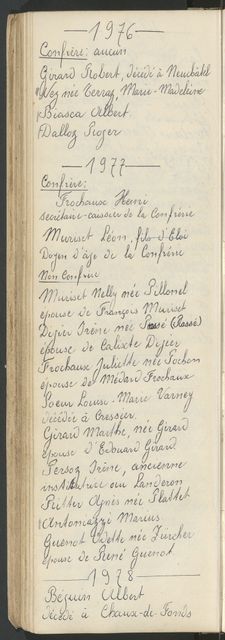 — 1976 —
Confrère: aucun
Girard Robert, décédé à Neuchâtel
Vez née Terraz, Marie-Madeleine
Biasca Albert.
Dalloz Roger
— 1977 —
Confrère:
Frochaux Henri
secrétaire-caissier de la Confrérie
Muriset Léon, fils d'Eloi
Doyen d'âge de la Confrérie
Non Confrère
Muriset Nelly née Pellonel
épouse de François Muriset
Digier Irène née (Possé)
épouse de Calixte Digier
Frochaux Juliette née Pochon
épouse de Médard Frochaux
Soeur Louise-Marie Varney
décédée à Cressier.
Girard Marthe, née Girard
épouse d'Edouard Girard
Persoz Irène, ancienne
institutrice au Landeron
Ritter Agnès née Plattet
Antoniazzi Marius
Guenot Odette née Zürcher
épouse de René Guenot
— 1978 —
Béguin Albert
décédé à Chaux-de-Fonds